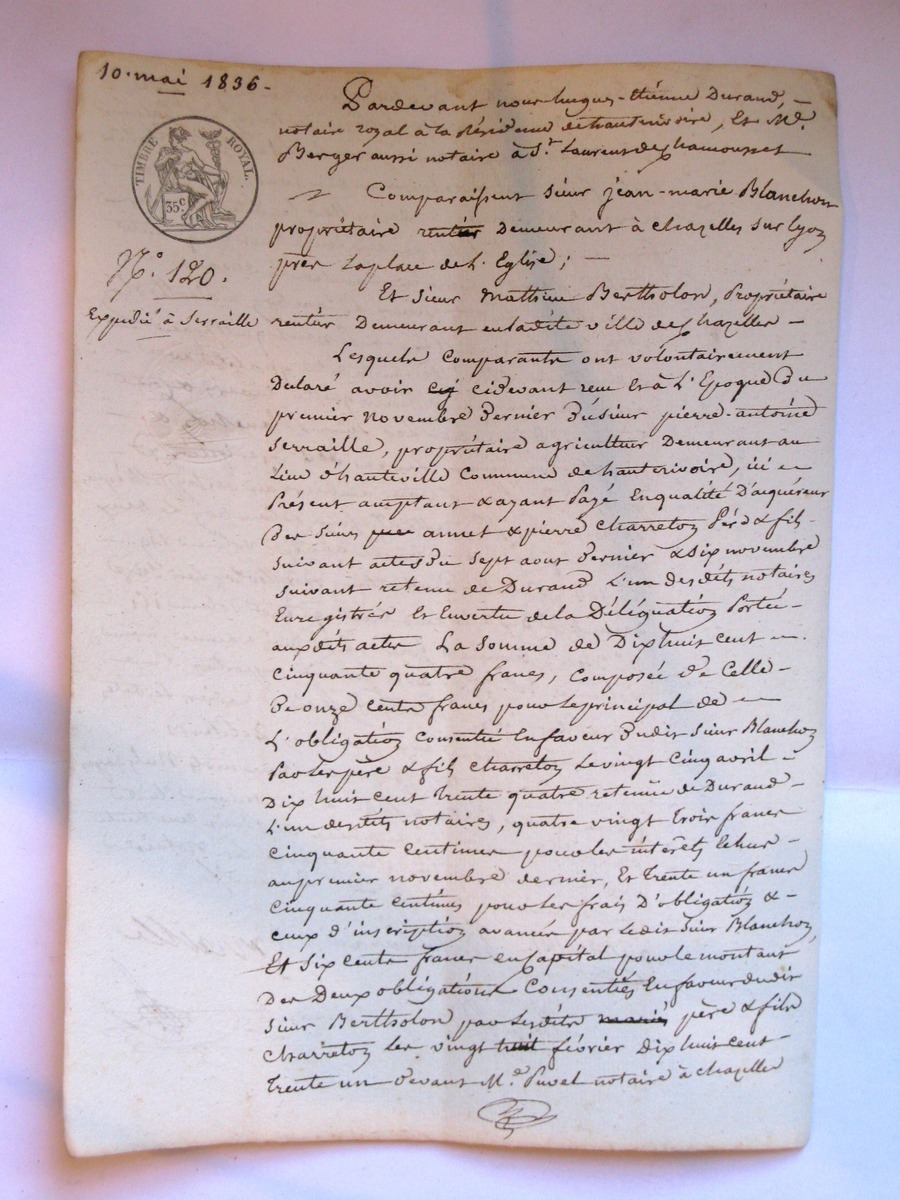 10. mai 1836 -
TIMBRE ROYAL.
35c
N.º 120.
Expédié à Serraille
Pardevant nous hugues-étienne Durand, -
notaire royal à la Résidence de hauterivoire, Et Me.
Berger aussi notaire à St. Laurent de Chamousset
Comparaissent sieur jean-marie Blanchon
propriétaire rentier Demeurant à chazelles sur lyon
près la place de L'Eglise ; —
Et sieur Mathieu Bertholon, Propriétaire
rentier Demeurant en ladite ville de Chazelles -
Lesquels Comparants ont volontairement
Déclaré avoir cidevant reçu Et à L'Epoque Du
premier novembre Dernier Du sieur pierre-antoine
Serraille, propriétaire agriculteur Demeurant au
Lieu d'hauteville Commune de hauterivoire, ici -
Présent acceptant & ayant Payé En qualité D'acquéreur
Des sieurs annet & pierre Charreton Père & fils
suivant actes du sept aout dernier & six novembre
suivant retenue de Durand L'un desdits notaires
Enregistrés Et En vertu de la Délégation Portée -
auxdits actes La somme de Dix huit cent -
cinquante quatre francs, composée de Celle -
De onze cents francs pour le principal de -
L'obligation Consentie En faveur Dudit sieur Blanchon
Par les père & fils Charreton le vingt cinq avril -
Dix huit cent trente quatre retenue de Durand -
L'un desdits notaires, quatre vingt trois francs
cinquante centimes pour les intérêts échus -
au premier novembre dernier, Et trente un francs
cinquante centimes pour les frais D'obligation & -
ceux d'inscription avancés par ledit sieur Blanchon,
Et six cents francs en Capital pour le montant
Des Deux obligations Consenties En faveur dudit
sieur Bertholon par lesdits mariés père & fils
Charreton les vingt huit février dix huit cent
trente un devant Me. notaire à chazelles